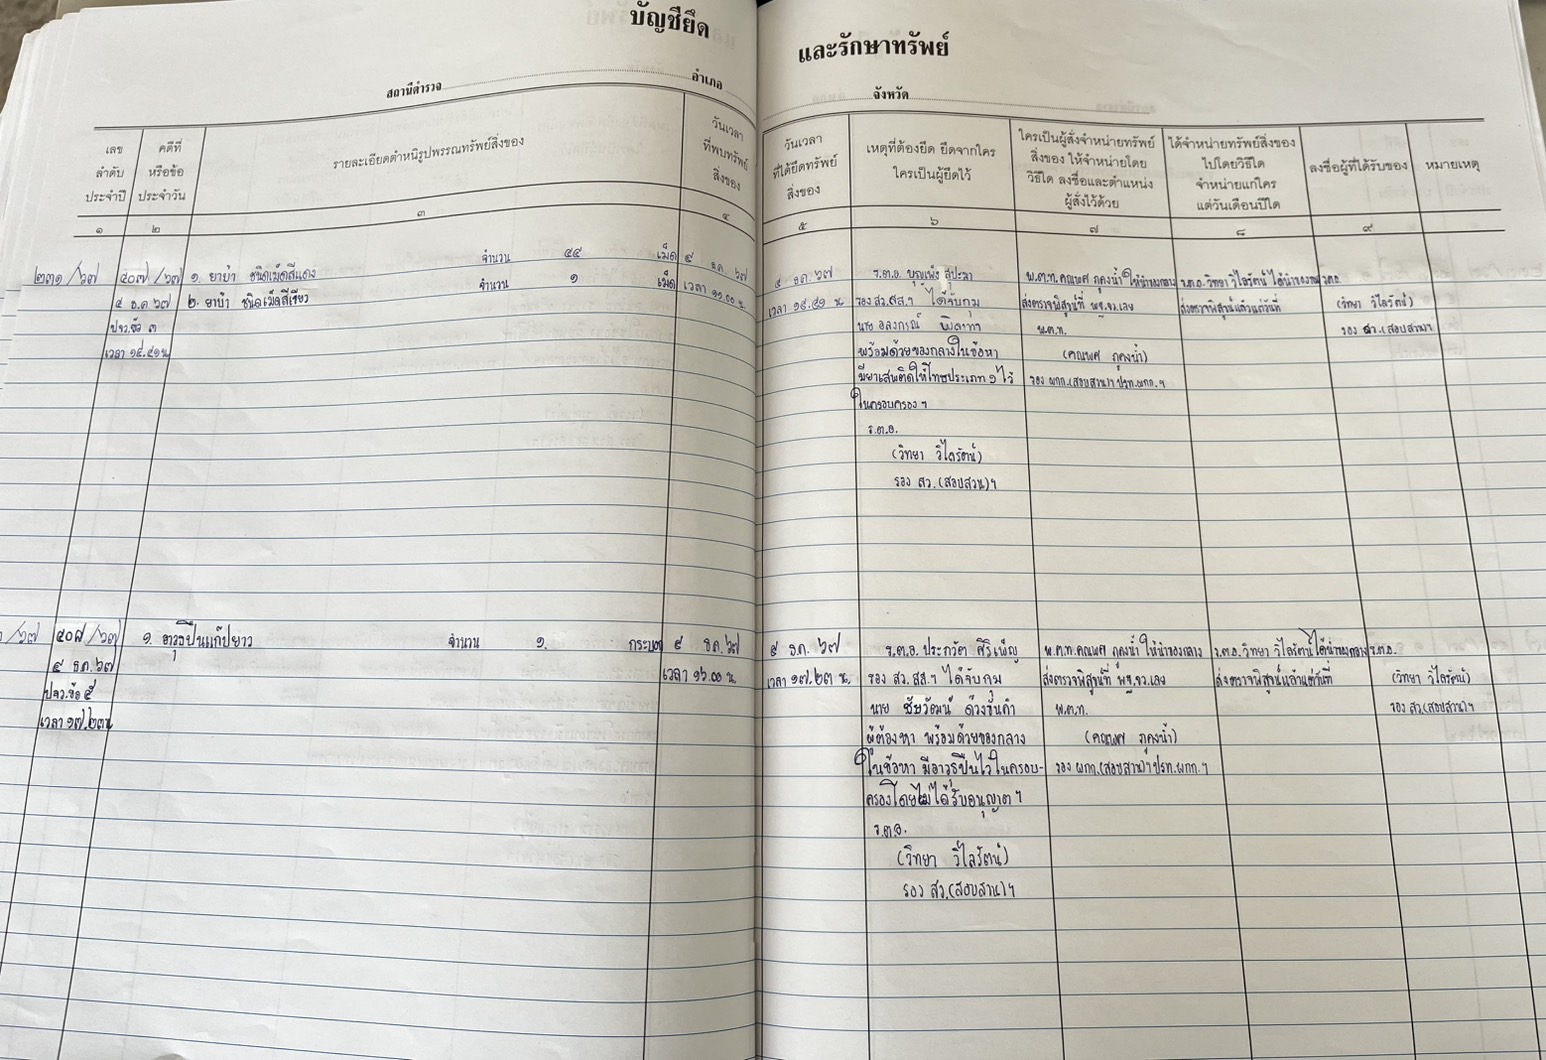 บัญชียึด
และรักษาทรัพย์
สถานีตำรวจ
อำเภอ
จังหวัด
เลข
ลำดับ
ประจำปี
คดีที่
หรือข้อ
ประจำวัน
รายละเอียดตำหนิรูปพรรณทรัพย์สิ่งของ
วันเวลา
ที่พบทรัพย์
สิ่งของ
วันเวลา
ที่ได้ยึดทรัพย์
สิ่งของ
เหตุที่ต้องยึด ยึดจากใคร
ใครเป็นผู้ยึดไว้
ใครเป็นผู้สั่งจำหน่ายทรัพย์
สิ่งของ ให้จำหน่ายโดย
วิธีใด ลงชื่อและตำแหน่ง
ผู้สั่งไว้ด้วย
ได้จำหน่ายทรัพย์สิ่งของ
ไปโดยวิธีใด
จำหน่ายแก่ใคร
แต่วันเดือนปีใด
ลงชื่อผู้ที่ได้รับของ
หมายเหตุ
๑
๒
๓
๔
๕
๖
๗
๘
๙
๒๓๑/๖๗
๔๐๗/๖๗
๔ ธ.ค ๖๗
ปจว.ข้อ ๓
เวลา ๑๔.๔๑ น
๑. ยาบ้า ชนิดเม็ดสีแดง จำนวน ๔๔ เม็ด
๒. ยาบ้า ชนิดเม็ดสีเขียว จำนวน ๑ เม็ด
๙ ธ.ค. ๖๗
เวลา ๑๑.๐๐ น.
๔ ธ.ค. ๖๗
เวลา ๑๔.๔๑ น.
ร.ต.อ. บุญเพ็ง
รอง สว.สส.ฯ ได้จับกุม
นาย อลงกรณ์
พร้อมด้วยของกลางในข้อหา
มียาเสพติดให้โทษประเภท ๑ ไว้
ในครอบครอง ฯ
ร.ต.อ.
(วิทยา วิไลรัตน์)
รอง สว.(สอบสวน)ฯ
พ.ต.ท.คณพศ ภูคงน้ำ ให้นำของกลาง
ส่งตรวจพิสูจน์ที่ พฐ.จว.เลย
พ.ต.ท.
(คณพศ ภูคงน้ำ)
รอง ผกก.(สอบสวน)ฯ ปรท.ผกก.ฯ
ร.ต.อ.วิทยา วิไลรัตน์ ได้นำของกลาง
ส่งตรวจพิสูจน์แล้วแต่วันที่
ร.ต.อ.
(วิทยา วิไลรัตน์)
รอง สว.(สอบสวน)ฯ
/๖๗
๔๐๘/๖๗
๙ ธ.ค. ๖๗
ปจว.ข้อ ๕
เวลา ๑๗.๒๓ น
๑. อาวุธปืนแก๊ปยาว จำนวน ๑. กระบอก
๙ ธ.ค. ๖๗
เวลา ๑๖.๐๐ น.
๙ ธ.ค. ๖๗
เวลา ๑๗.๒๓ น.
ร.ต.อ. ประกวิต ศิริเพ็ญ
รอง สว.สส.ฯ ได้จับกุม
นาย ชัยวัฒน์ ด้วงชั้นคำ
ผู้ต้องหา พร้อมด้วยของกลาง
ในข้อหา มีอาวุธปืนไว้ในครอบ-
ครองโดยไม่ได้รับอนุญาต ฯ
ร.ต.อ.
(วิทยา วิไลรัตน์)
รอง สว.(สอบสวน)ฯ
พ.ต.ท.คณพศ ภูคงน้ำ ให้นำของกลาง
ส่งตรวจพิสูจน์ที่ พฐ.จว.เลย
พ.ต.ท.
(คณพศ ภูคงน้ำ)
รอง ผกก.(สอบสวน)ฯ ปรท.ผกก.ฯ
ร.ต.อ.วิทยา วิไลรัตน์ ได้นำของกลาง
ส่งตรวจพิสูจน์แล้วแต่วันที่
ร.ต.อ.
(วิทยา วิไลรัตน์)
รอง สว.(สอบสวน)ฯ